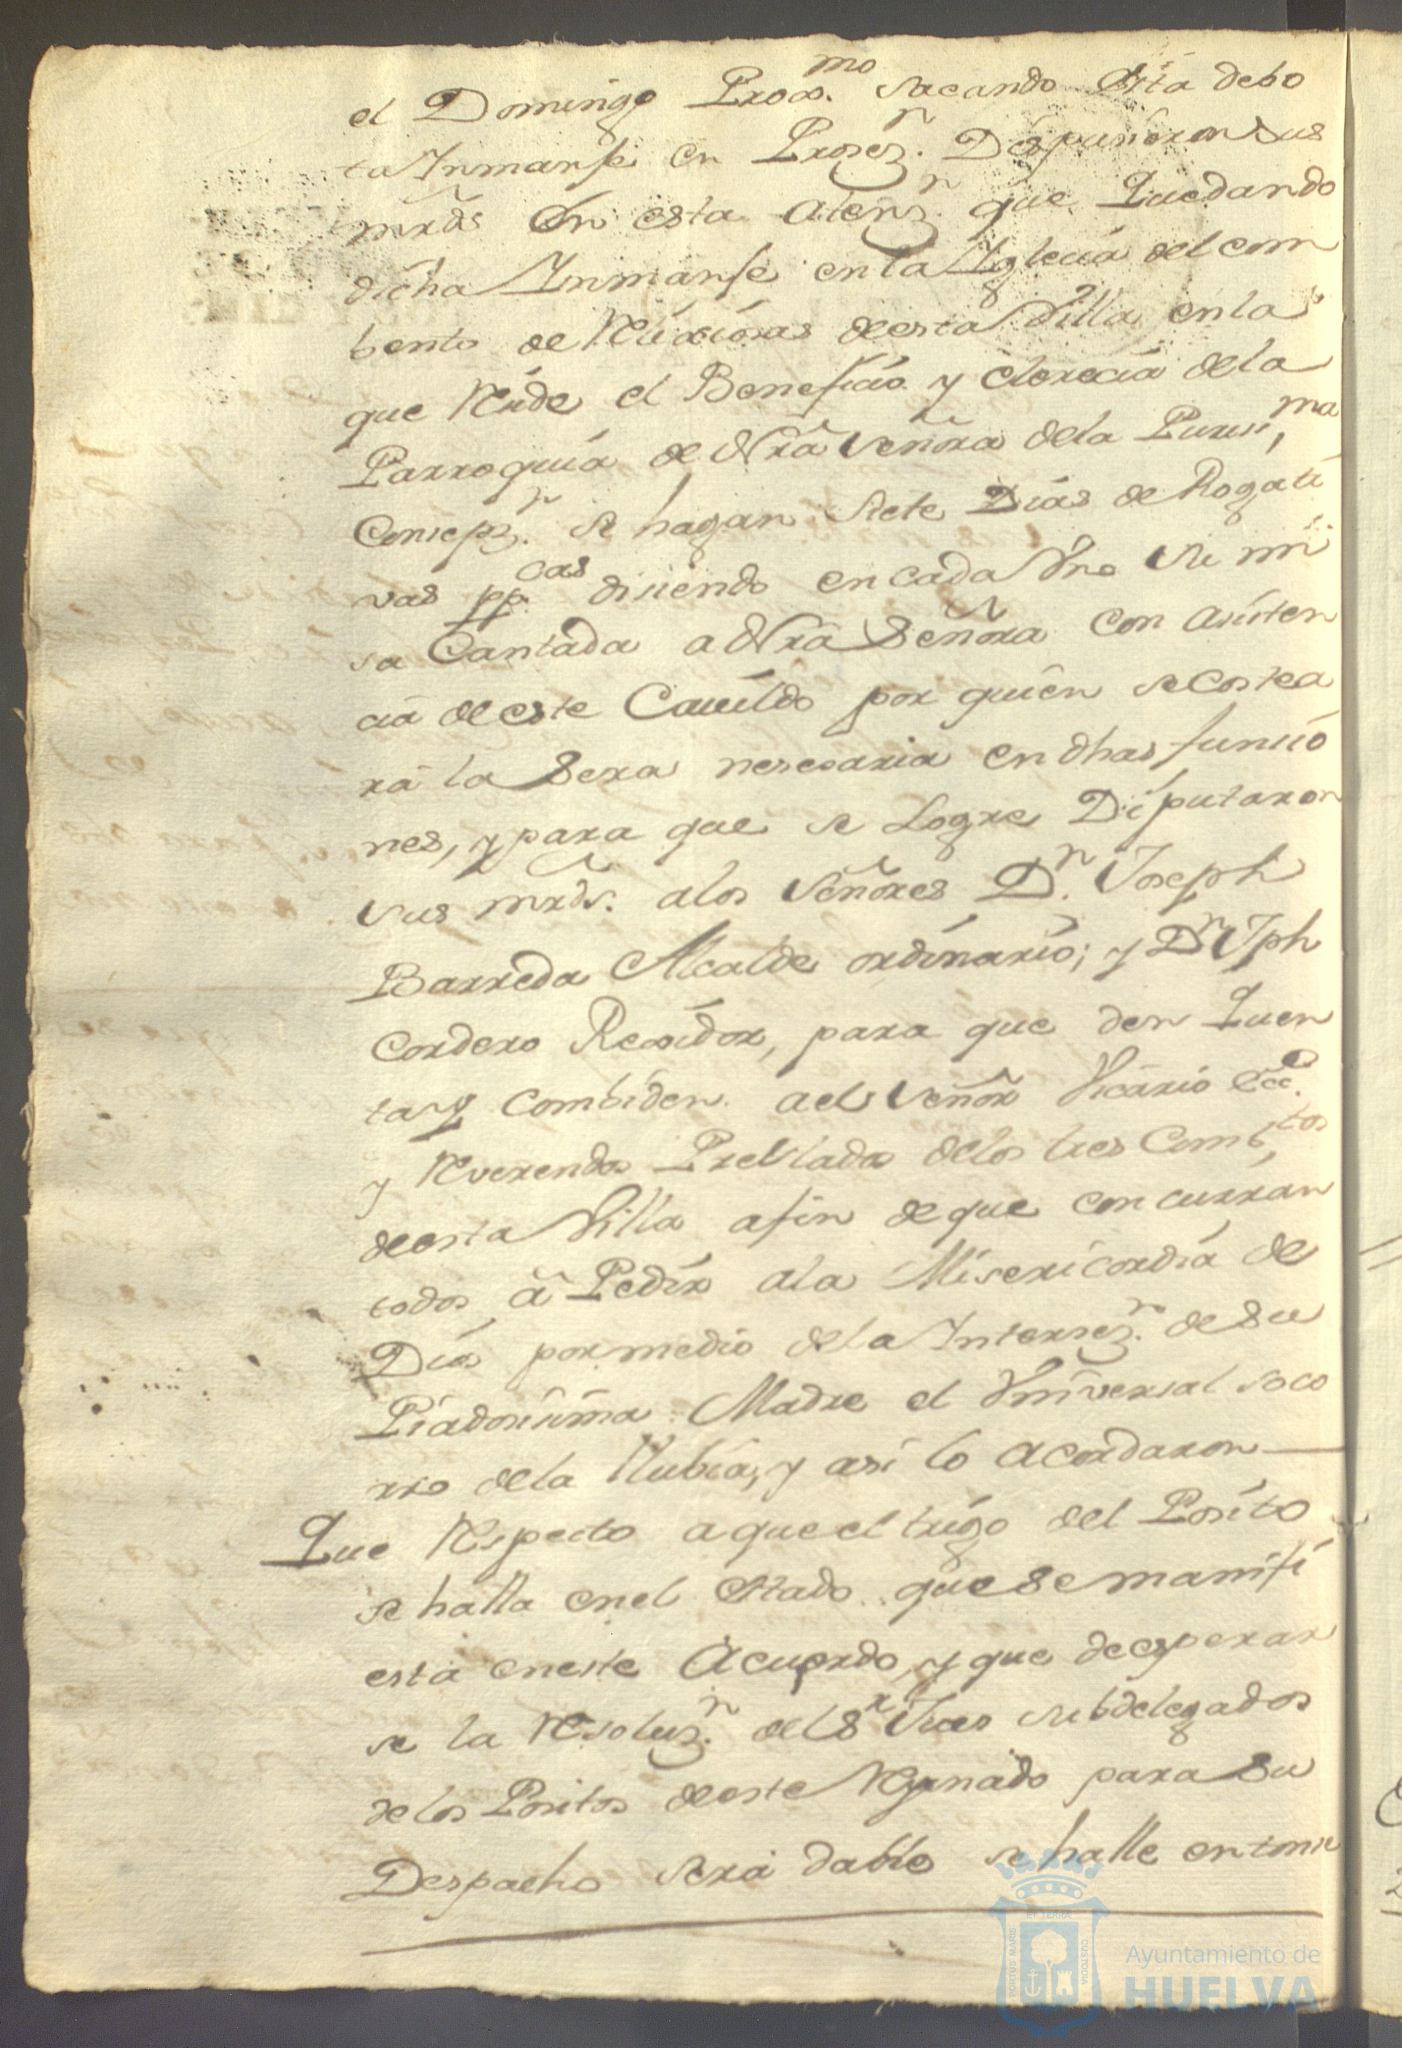 el Domingo Proxᵐᵒ. sacando Esta debo
ta Ymanse en Prosezⁿ. Dispusieron sus
mrds. En esta Atenzⁿ. que Quedando
dicha Ymanse en la Yglecia del com
bento de Relixiosas de esta Villa en la
que Recide el Beneficio y clerecia de la
Parroquia de Nrâ Señora de la Purisiᵐᵃ
Consepzⁿ. se hagan siete Dias de Rogati
vas pp.ᶜᵃˢ disiendo en cada Vno su mi
sa Cantada a Nrâ Señora con asisten
cia de este Cavildo por quien se costea
rá la Sera nesesaria en dhas funcio
nes, y para que se Logre Diputaron
sus mrds. a los Señores Dⁿ. Joseph
Barreda Alcalde ordinario; y Dⁿ Jph
Cordero Rexidor, para que den Quen
ta y combiden al Señor Vicario Eccᵒ.
y Reverendos Prelados de los tres Combᵗᵒˢ
de esta Villa a fin de que concurran
todos â Pedir a la Misericordia de
Dios por medio de la Intersezⁿ. de su
Piadosisima Madre el Vniversal soco
rro de la Llubia, y asi lo acordaron
Que Respecto a que el trigo del Posito
se halla en el Estado que se manifi
esta en este Acuerdo, y que de esperar
se la Resoluzⁿ. del Sʳ Jues subdelegado
de los Positos de este Reynado para su
Despacho será dable se halle entonse
Ayuntamiento de
HUELVA
PORTUS MARIS
ET TERRA
CUSTODIA